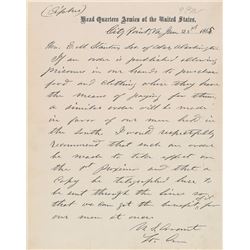 (Cipher)
Head Quarters Armies of the United States,
City Point, Va, Jan 21st 1865
Hon. E. M. Stanton Sec of War Washington
If an order is published allowing
prisoners in our hands to purchase
food and clothing where they have
the means of paying for them,
a similar order will be made
in favor of our men held in
the South. I would respectfully
recommend that such an order
be made to take effect on
the 1st Proximo and that a
Copy be telegraphed here to
be sent through the lines so
that we can get the benefits for
our men at once.
U. S. Grant
Lt. Gen